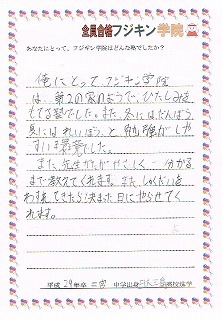 全員合格フジキン学院
あなたにとって、フジキン学院はどんな塾でしたか?
俺にとってフジキン学院
は、第2の家のようで、ひたしみを
もてる塾でした。また、冬にはだんぼう
夏にはれいぼう、と勉強がしや
すい塾でした。
また、先生方がやさしく、分かる
まで教えてくれます。また、しゅくだいを
わすれてきたら決また日にやらせてく
れます。
平成 29年卒 二宮 中学出身 高校進学